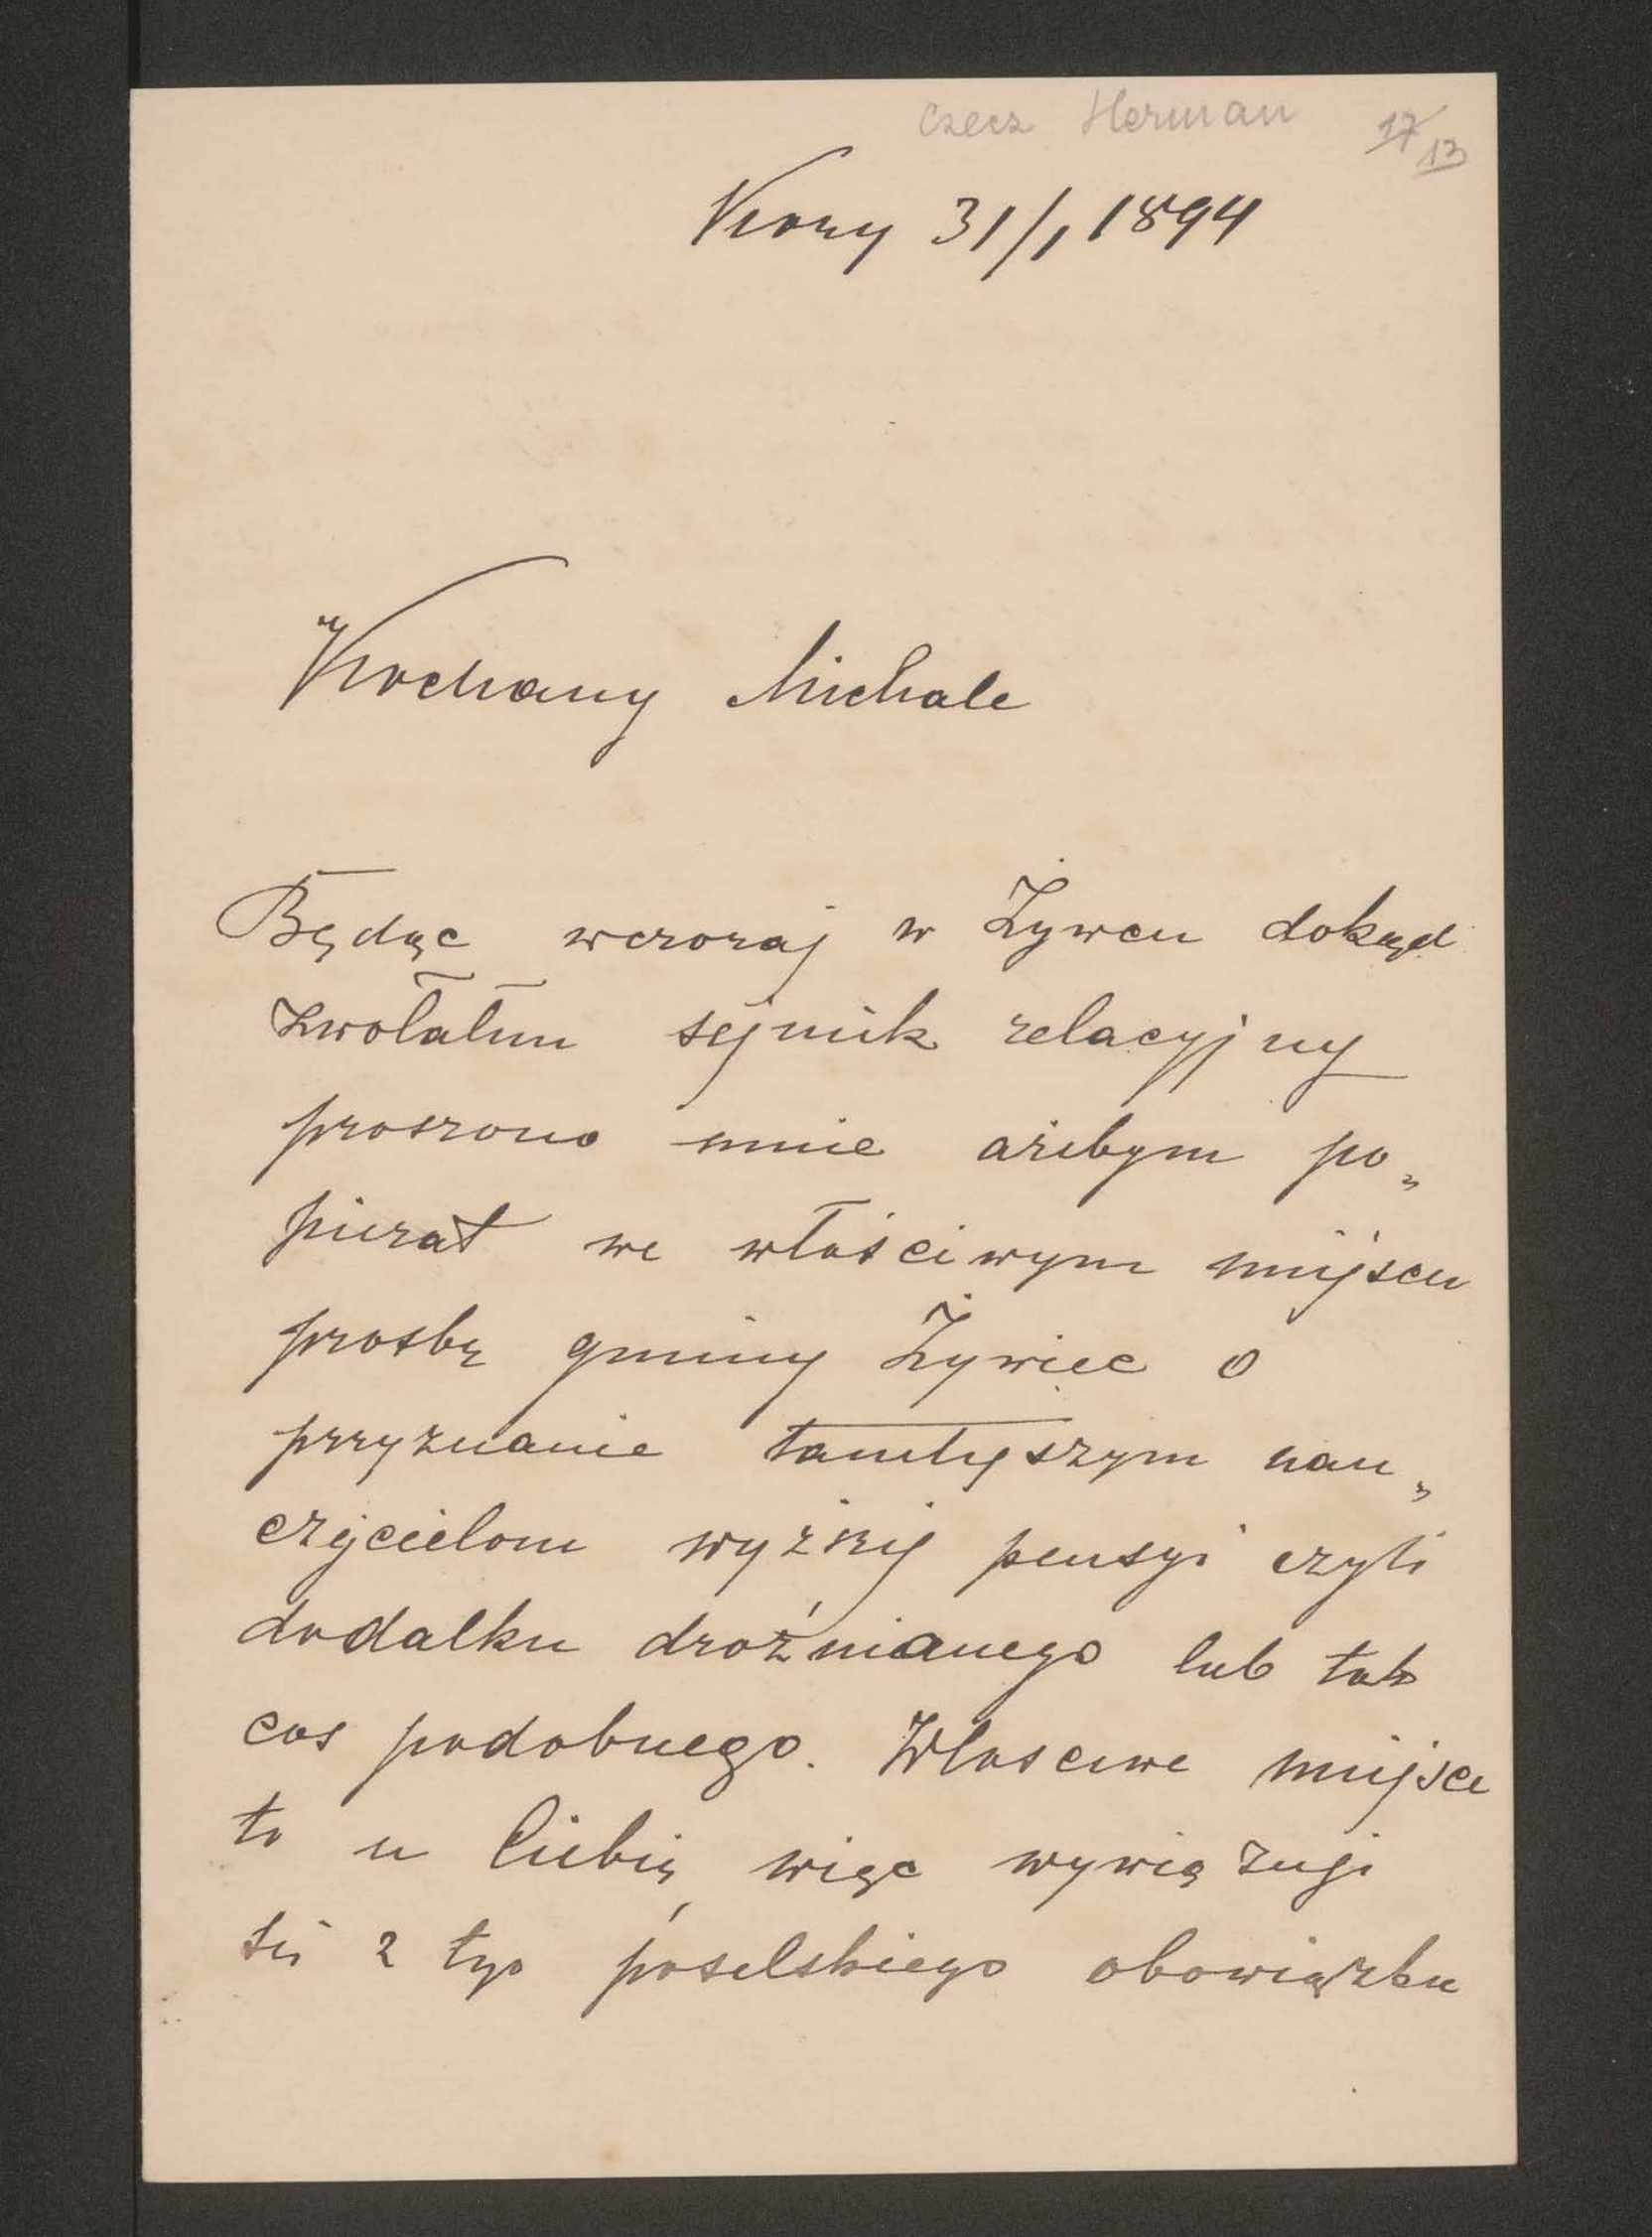 Czecz Herman 17
13
Kozy 31/1 1894
Kochany Michale
Będąc wczoraj w Żywcu dokąd
zwołałem sejmik relacyjny
proszono mnie ażebym po„
pierał we właściwym miejscu
prośbę gminy Żywiec o
przyznanie tamtejszym nau„
czycielom wyższej pensyi czyli
dodatku drożnianego lub tak
coś podobnego. Włascewe miejsce
to u Ciebie, więc wywiązuję
się z tego poselskiego obowiązku